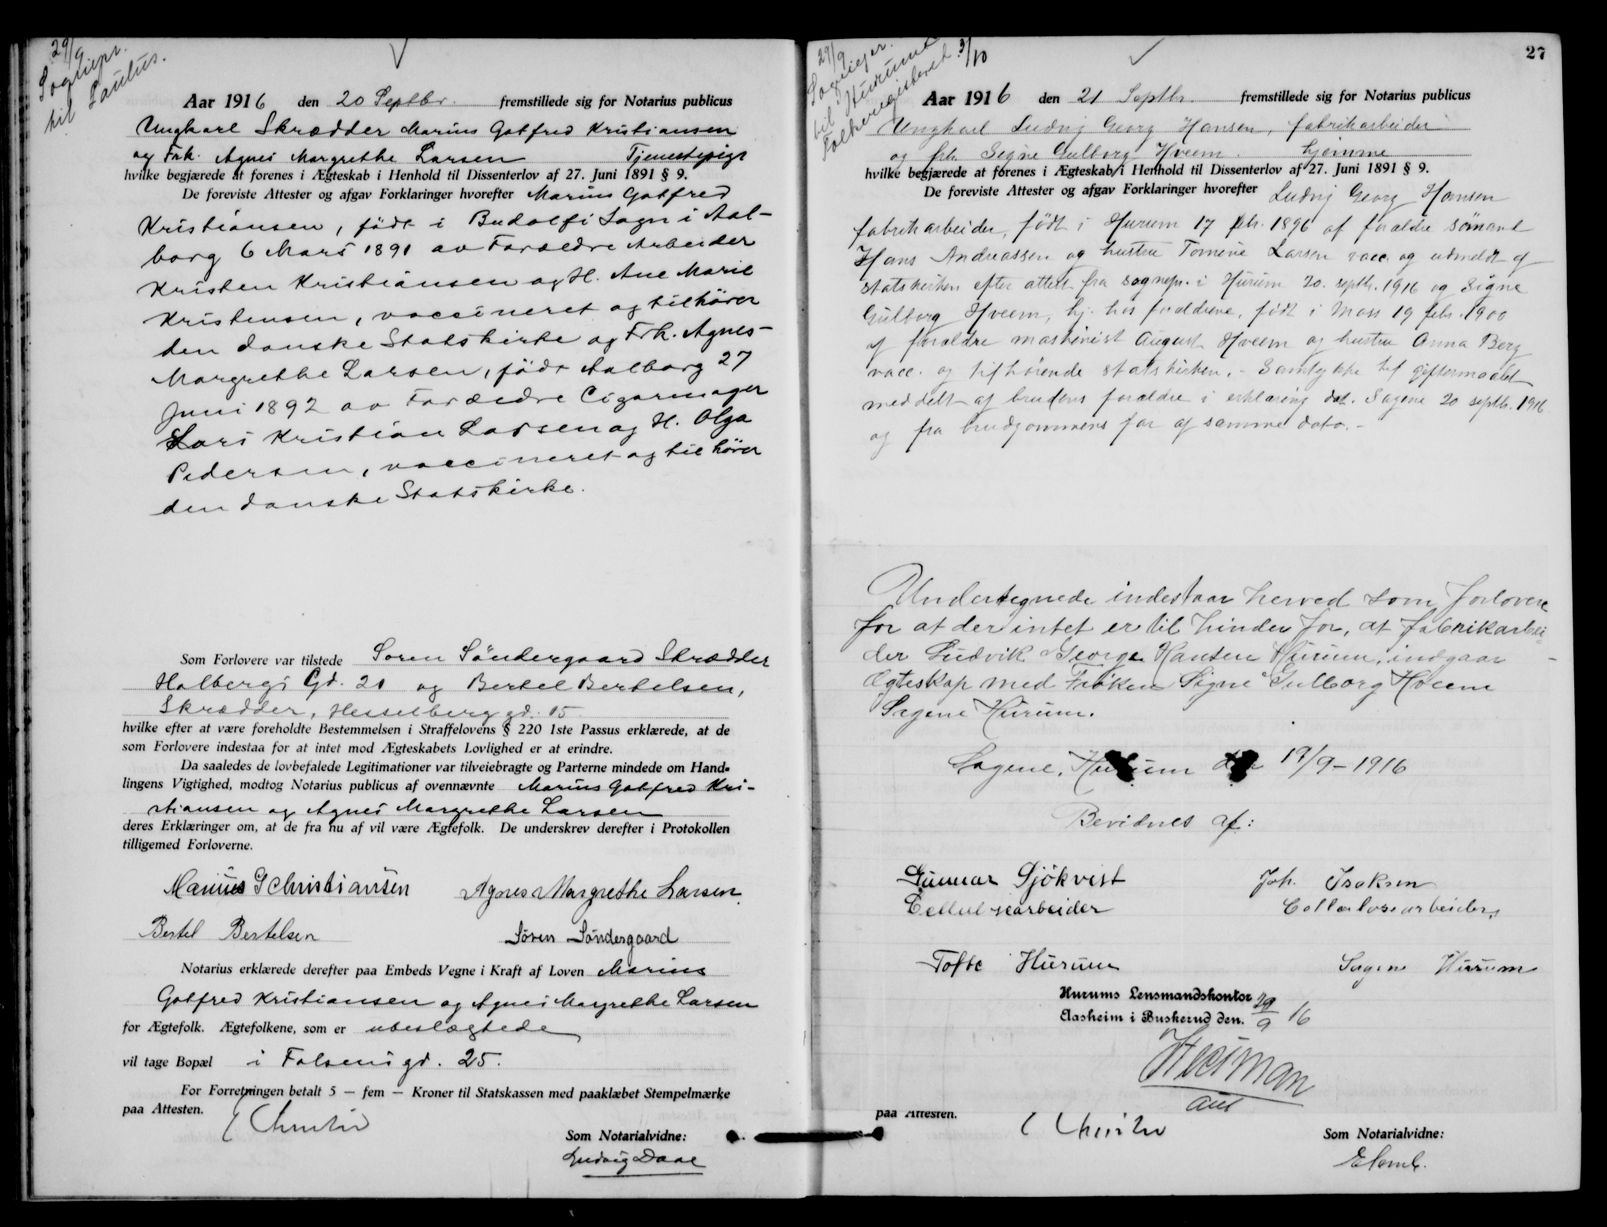 29/9
Sogniepr.
til Paulus.
Aar 1916 den 20 Septbr. fremstillede sig for Notarius publicus
Ungkarl Skrædder Marius Gotfred Kristiansen
og Frk. Agnes Margrethe Larsen Tjenestepige
hvilke begjærede at forenes i Ægteskab i Henhold til Dissenterlov af 27. Juni 1891 § 9.
De foreviste Attester og afgav Forklaringer hvorefter Marius Gotfred
Kristiansen, født i Budolfi Sogn i Aal-
borg 6 Mars 1891 av Forældre Arbeider
Kristen Kristiansen og H. Ane Marie
Kristensen, vaccineret og tilhører
den danske Statskirke og Frk. Agnes
Margrethe Larsen, født Aalborg 27
Juni 1892 av Forældre Cigarmager
Lars Kristian Larsen og H. Olga
Pedersen, vaccineret og tilhører
den danske Statskirke.
Som Forlovere var tilstede Søren Søndergaard Skrædder
Holbergs Gd. 21 og Bertel Bertelsen,
Skrædder, Hesselberg gd. 15
hvilke efter at være foreholdte Bestemmelsen i Straffelovens § 220 1ste Passus erklærede, at de
som Forlovere indestaa for at intet mod Ægteskabets Lovlighed er at erindre.
Da saaledes de lovbefalede Legitimationer var tilveiebragte og Parterne mindede om Hand-
lingens Vigtighed, modtog Notarius publicus af ovennævnte Marius Gotfred Kri-
stiansen og Agnes Margrethe Larsen
deres Erklæringer om, at de fra nu af vil være Ægtefolk. De underskrev derefter i Protokollen
tilligemed Forloverne.
Marius G Christiansen Agnes Margrethe Larsen.
Bertel Bertelsen Søren Søndergaard
Notarius erklærede derefter paa Embeds Vegne i Kraft af Loven Marius
Gotfred Kristiansen og Agnes Margrethe Larsen
for Ægtefolk. Ægtefolkene, som er ubeslægtede
vil tage Bopæl i Falsens gd. 25.
For Forretningen betalt 5 — fem — Kroner til Statskassen med paaklæbet Stempelmærke
paa Attesten.
Som Notarialvidne:
Ludvig Daae
27
29/9
Sogniepr.
til Hurum
Folkeregisteret 3/10
Aar 1916 den 21 Septbr. fremstillede sig for Notarius publicus
Ungkarl Ludvig Georg Hansen, fabrikarbeider
og frk. Signe Gulborg Hveem. hjemme
hvilke begjærede at forenes i Ægteskab i Henhold til Dissenterlov af 27. Juni 1891 § 9.
De foreviste Attester og afgav Forklaringer hvorefter Ludvig Georg Hansen
fabrikarbeider, født i Hurum 17 febr. 1896 af forældre sømand
Hans Andreassen og hustru Tomine Larsen vacc. og udmeldt af
statskirken efter attest fra sognepr. i Hurum 20. septb. 1916 og Signe
Gulborg Hveem, hj. hos forældrene, født i Moss 19 febr. 1900
af forældre maskinist August Hveem og hustru Anna Berg
vacc. og tilhørende statskirken. - Samtykke til giftermaalet
meddelt af brudens forældre i erklæring dat. Sagene 20 septb. 1916
og fra brudgommens far af samme dato. -
Undertegnede indestaar herved som forlovere
for at der intet er til hinder for, at fabrikarbei-
der Ludvik Georg Hansen Hurum, indgaar
Ægteskap med Frøken Signe Gulborg Hveem
Sagene Hurum.
Sagene, Hurum den 19/9-1916
Bevidnes af:
Gunnar Sjøkvist Joh. Isaksen
Cellulosearbeider Cellulosearbeider,
Tofte Hurum Sagene Hurum
Hurums Lensmandskontor 20/9 16
Aasheim i Buskerud den.
paa Attesten.
Som Notarialvidne: